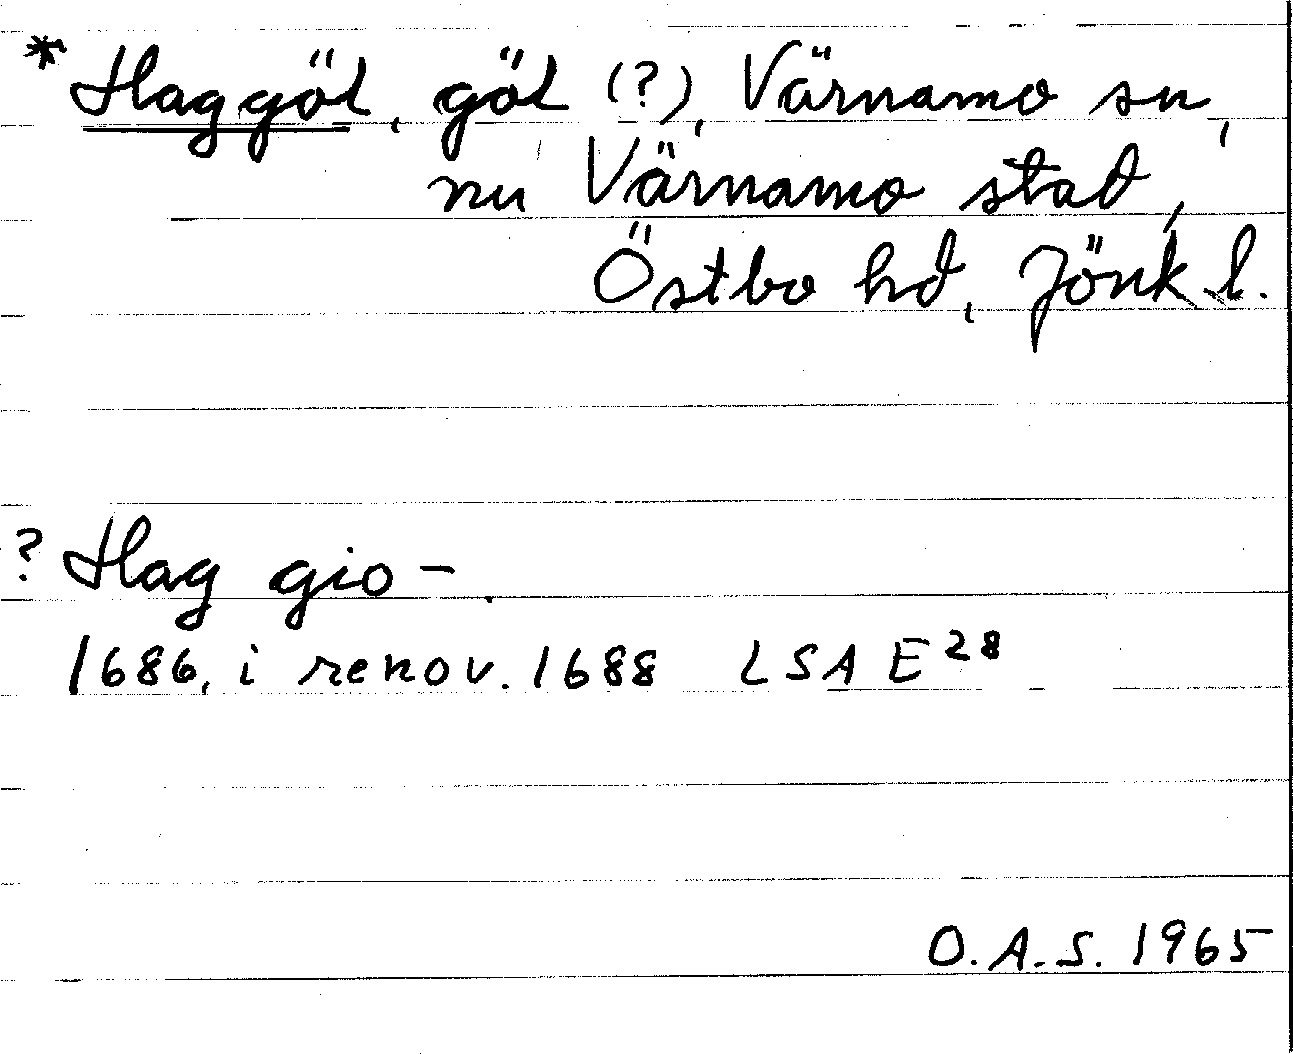 * Haggöl, göl (?), Värnamo sn,
nu Värnamo stad,
Östbo hd, Jönk. l.
? Hag gio-.
1686, i renov. 1688 LSA E28
O.A.S. 1965